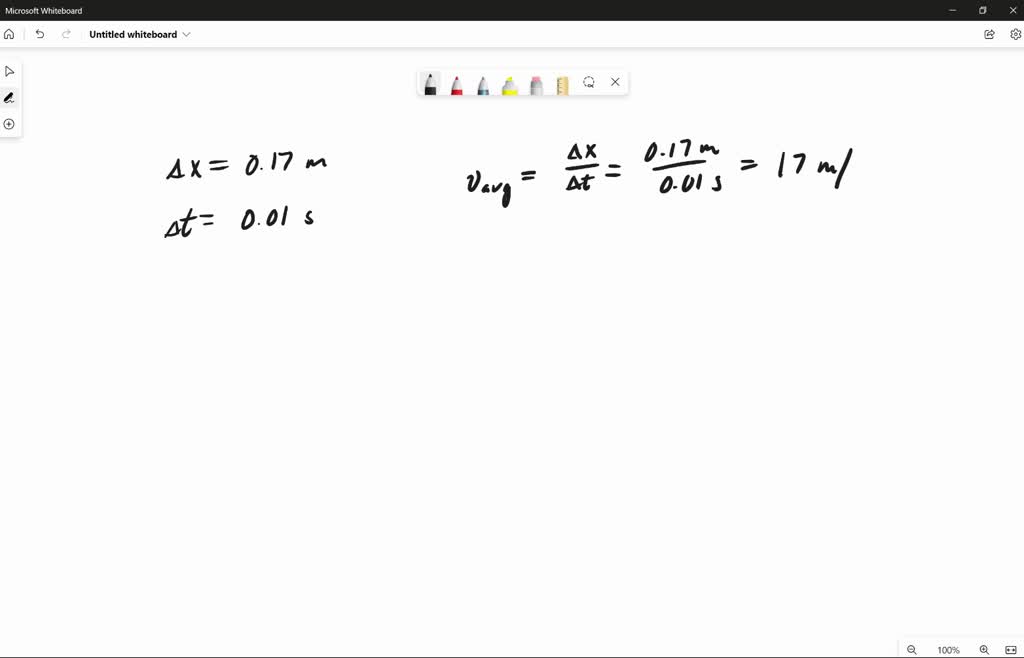 Microsoft Whiteboard
Untitled whiteboard
Δx = 0.17 m
Δt = 0.01 s
v avg = Δx/Δt = 0.17 m/0.01 s = 17 m/
100%